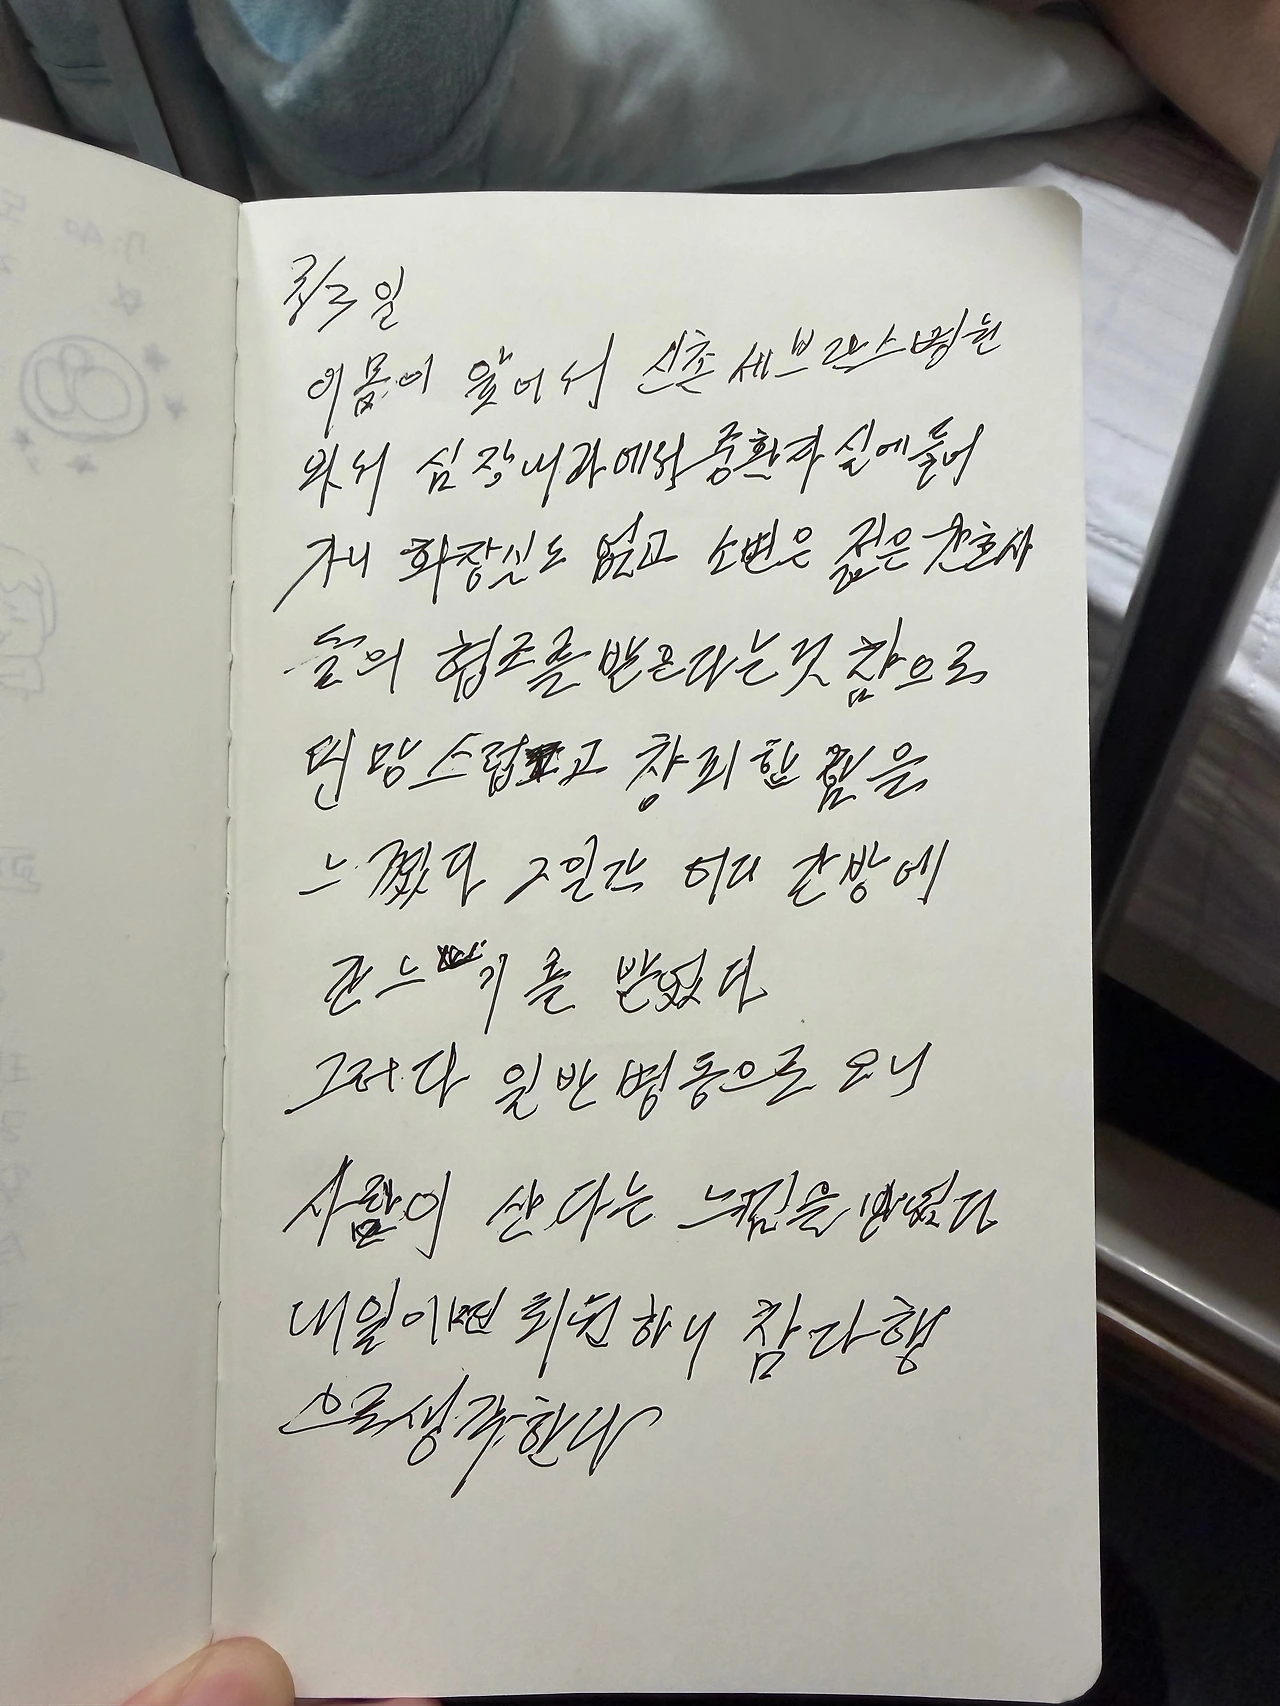 이몸이 앞어서 신촌세브란스병원
와서 심장내과에서 중환자실에들어
가니 화장실도 없고 소변은 젊은간호사
들의 협조를받은다는것 참으로
민망스럽고 창피한 낌을
느꼈다 2일간 어디 간방에
간느기를 받었다
그러다 일반병동으로 오니
사람이 산다는 느낌을 받었다
내일이면 퇴원하니 참다행
으로생각한다